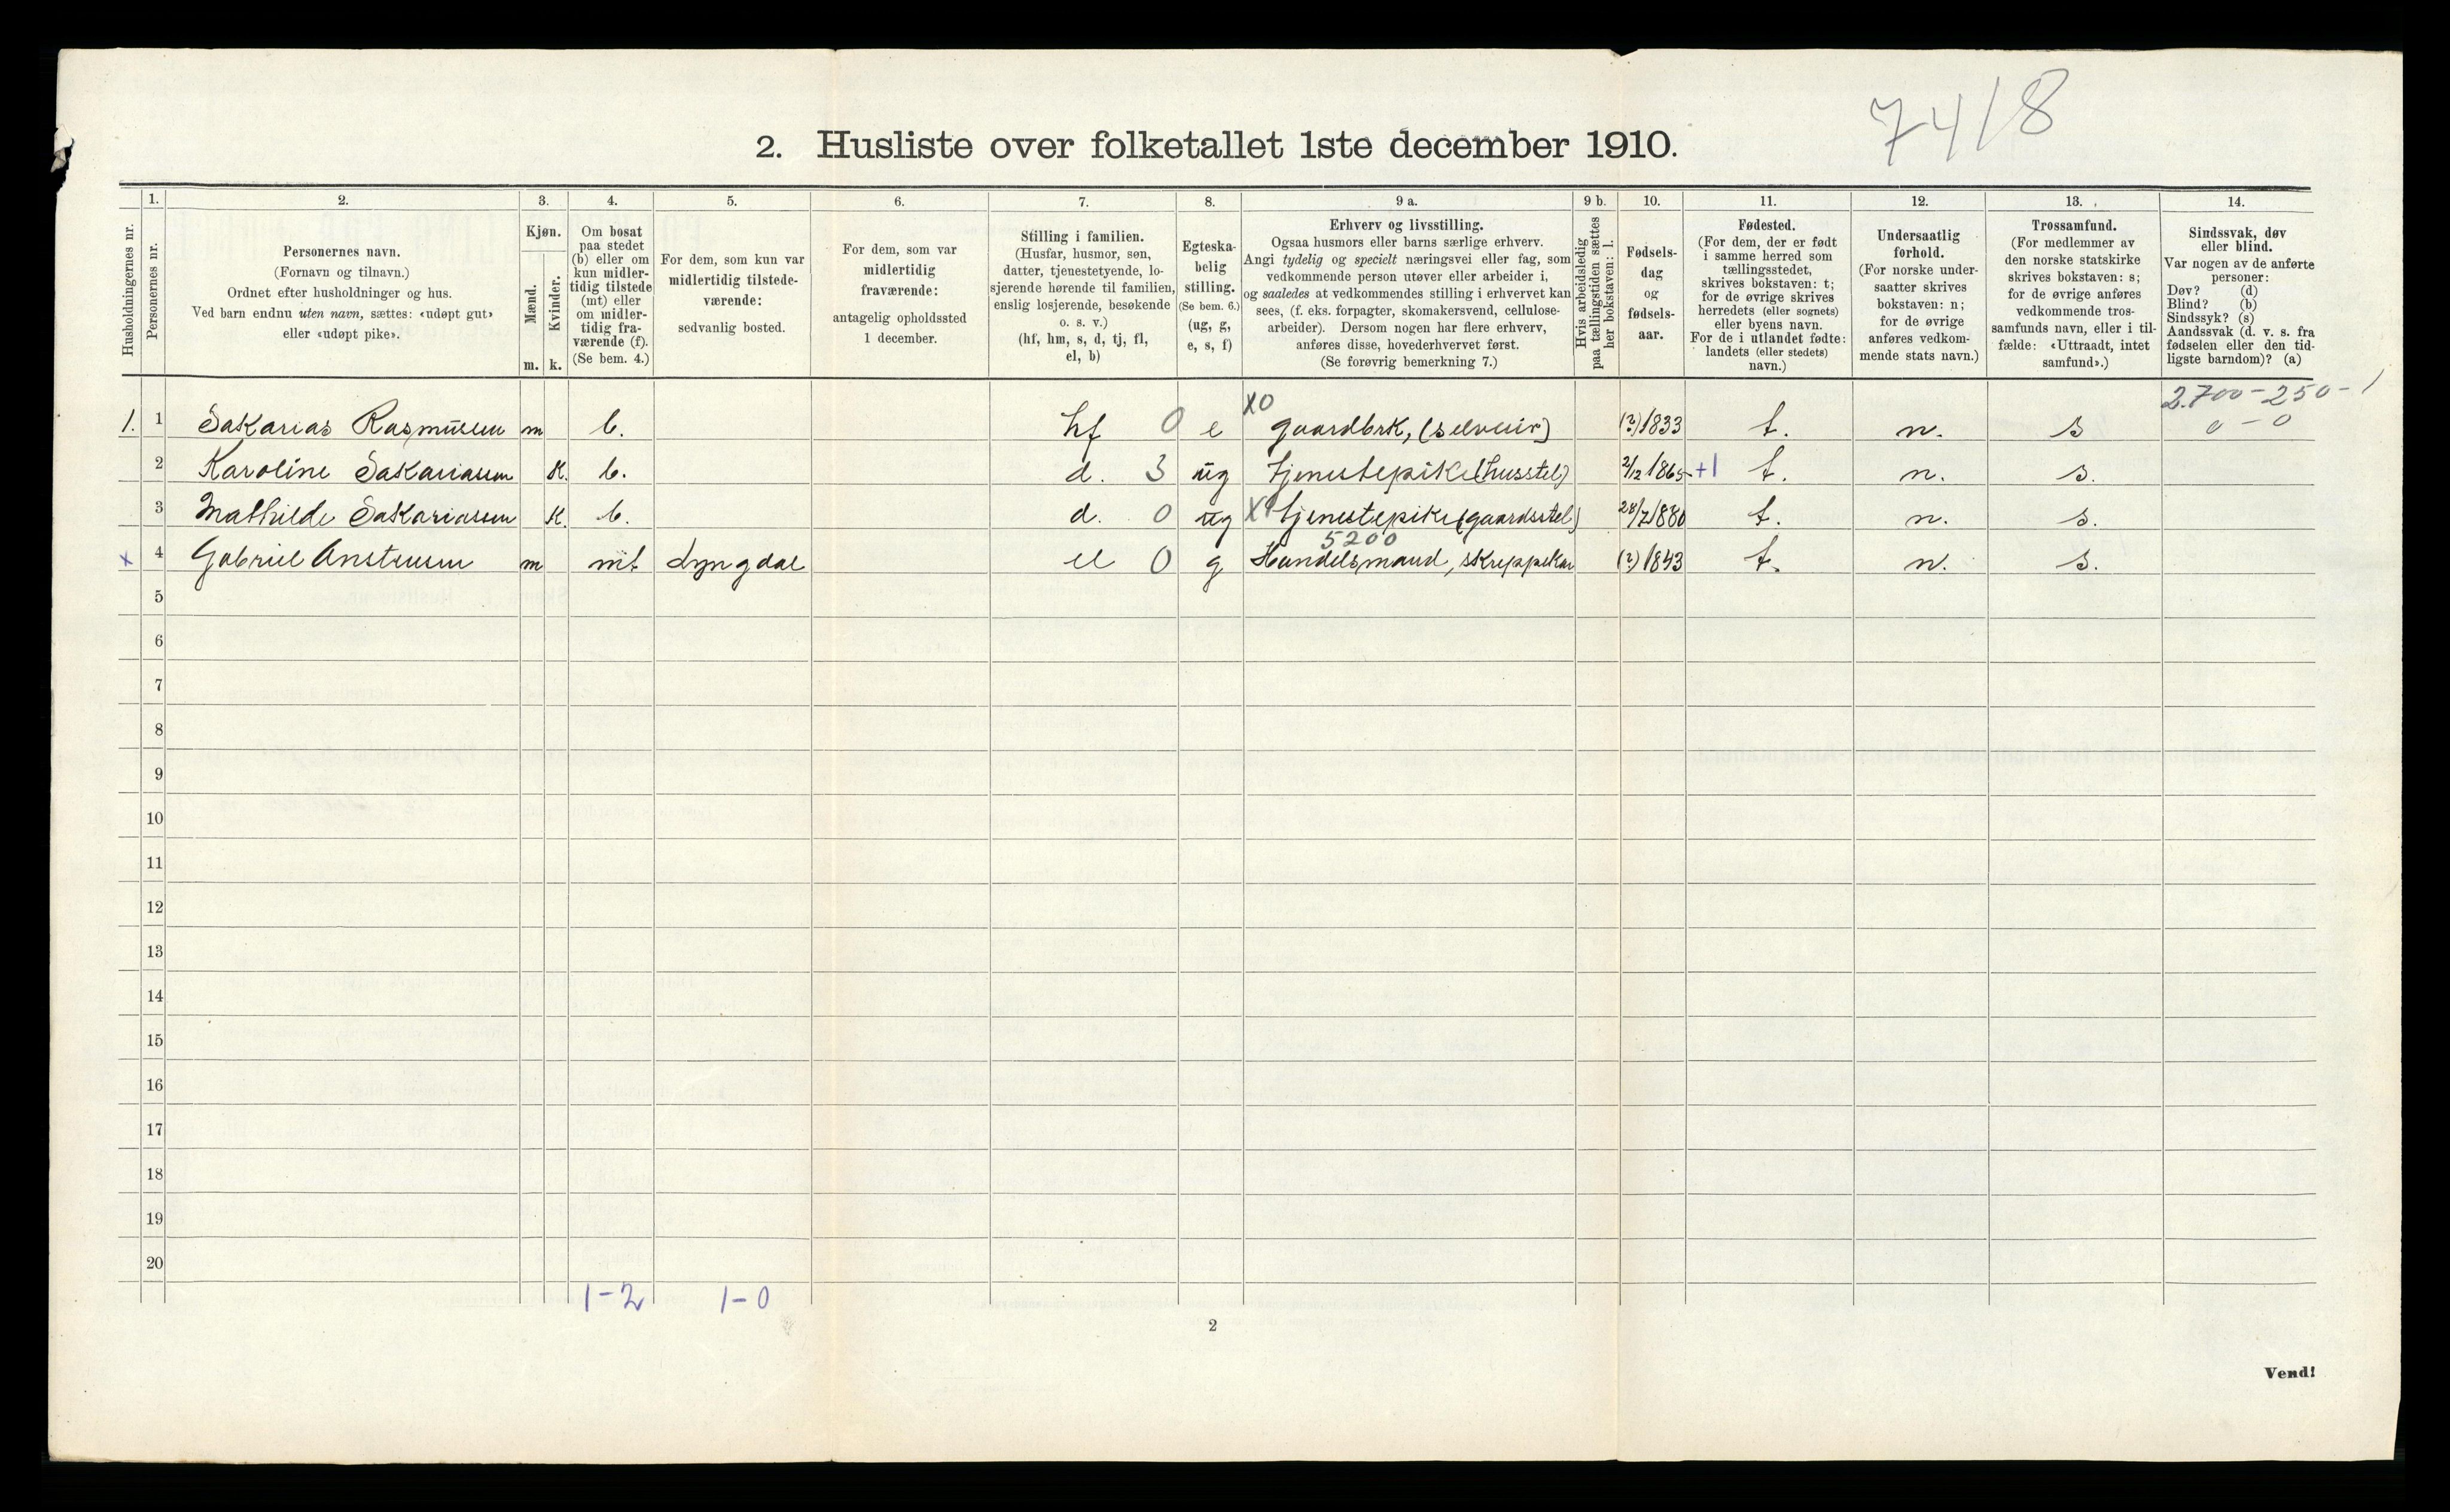 7418
2. Husliste over folketallet 1ste december 1910.
Husholdningernes nr.
1.
Personernes nr.
2.
Personernes navn.
(Fornavn og tilnavn.)
Ordnet efter husholdninger og hus.
Ved barn endnu uten navn, sættes: «udøpt gut»
eller «udøpt pike».
3.
Kjøn.
Mænd.
Kvinder.
m. k.
4.
Om bosat
paa stedet
(b) eller om
kun midler-
tidig tilstede
(mt) eller
om midler-
tidig fra-
værende (f).
(Se bem. 4.)
5.
For dem, som kun var
midlertidig tilstede-
værende:
sedvanlig bosted.
6.
For dem, som var
midlertidig
fraværende:
antagelig opholdssted
1 december.
7.
Stilling i familien.
(Husfar, husmor, søn,
datter, tjenestetyende, lo-
sjerende hørende til familien,
enslig losjerende, besøkende
o. s. v.)
(hf, hm, s, d, tj, fl,
el, b)
8.
Egteska-
belig
stilling.
(Se bem. 6.)
(ug, g,
e, s, f)
9 a.
Erhverv og livsstilling.
Ogsaa husmors eller barns særlige erhverv.
Angi tydelig og specielt næringsvei eller fag, som
vedkommende person utøver eller arbeider i,
og saaledes at vedkommendes stilling i erhvervet kan
sees, (f. eks. forpagter, skomakersvend, cellulose-
arbeider). Dersom nogen har flere erhverv,
anføres disse, hovederhvervet først.
(Se forøvrig bemerkning 7.)
9 b.
Hvis arbeidsledig
paa tællingstiden sættes
her bokstaven: l.
10.
Fødsels-
dag
og
fødsels-
aar.
11.
Fødested.
(For dem, der er født
i samme herred som
tællingsstedet,
skrives bokstaven: t;
for de øvrige skrives
herredets (eller sognets)
eller byens navn.
For de i utlandet fødte:
landets (eller stedets)
navn.)
12.
Undersaatlig
forhold.
(For norske under-
saatter skrives
bokstaven: n;
for de øvrige
anføres vedkom-
mende stats navn.)
13.
Trossamfund.
(For medlemmer av
den norske statskirke
skrives bokstaven: s;
for de øvrige anføres
vedkommende tros-
samfunds navn, eller i til-
fælde: «Uttraadt, intet
samfund».)
14.
Sindssvak, døv
eller blind.
Var nogen av de anførte
personer:
Døv? (d)
Blind? (b)
Sindssyk? (s)
Aandssvak (d. v. s. fra
fødselen eller den tid-
ligste barndom)? (a)
X0 2.700-250-1
1. 1 Sakarias Rasmussen m b. hf 0 e gaardbrk, (selveier) (?) 1833 t. n. s 0-0
2 Karoline Sakariassen K. b. d. 3 ug tjenestepike (husstel) 2/12 1865 +1 t. n. s.
3 Mathilde Sakariassen K. b. d. 0 ug tjenestepike (gaardsstel) 28/7 1880 t. n. s.
5200
x 4 Gabriel m mt Lyngdal el 0 g Handelsmand, skreppekar (?) 1843 t. n. s.
5
6
7
8
9
10
11
12
13
14
15
16
17
18
19
20
1-2 1-0
2
Vend!